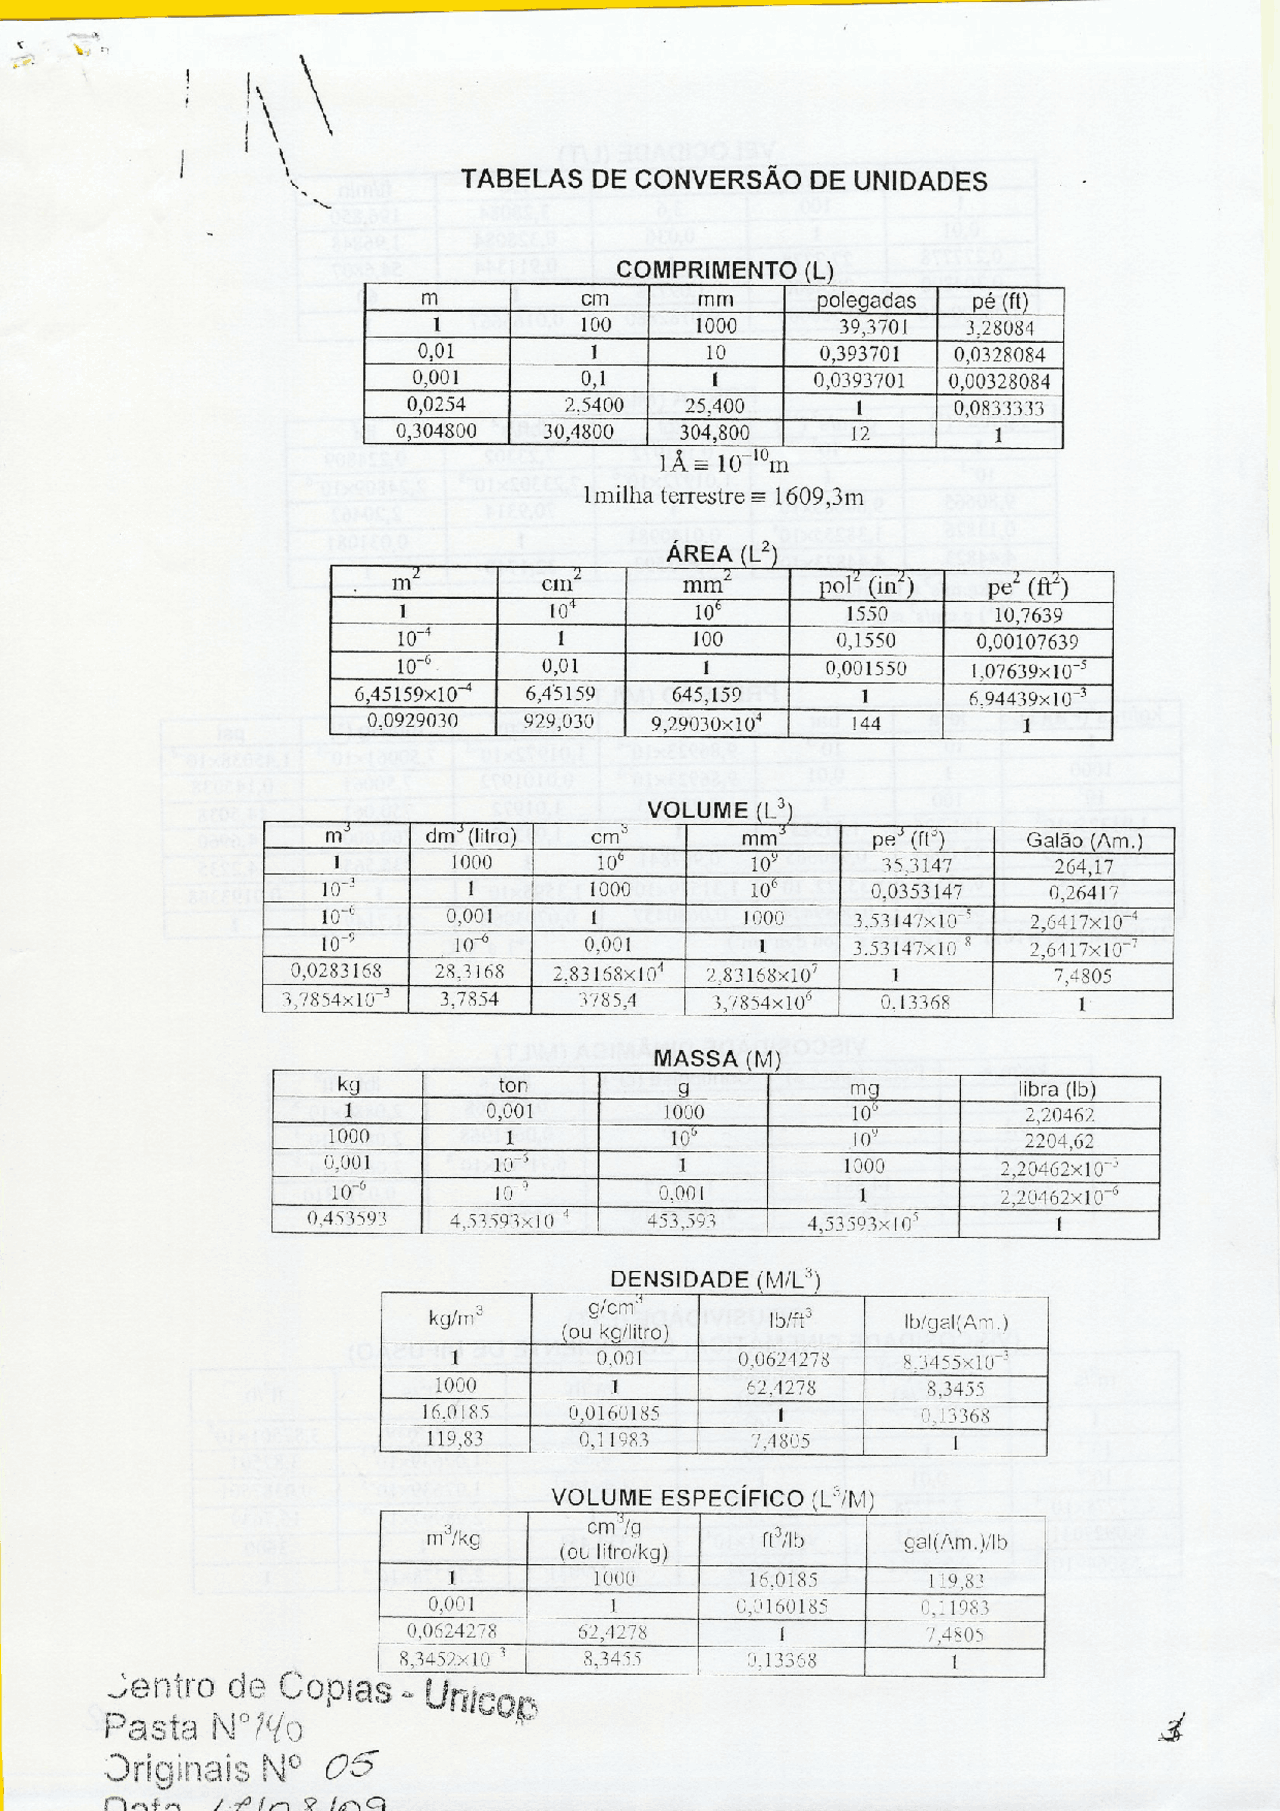 TABELAS DE CONVERSÃO DE UNIDADES
COMPRIMENTO (L)
m cm mm polegadas pé (ft)
1 100 1000 39,3701 3,28084
0,01 1 10 0,393701 0,0328084
0,001 0,1 1 0,0393701 0,00328084
0,0254 2,5400 25,400 1 0,0833333
0,304800 30,4800 304,800 12 1
1Å ≡ 10⁻¹⁰m
1milha terrestre ≡ 1609,3m
ÁREA (L²)
m² cm² mm² pol² (in²) pe² (ft²)
1 10⁴ 10⁶ 1550 10,7639
10⁻⁴ 1 100 0,1550 0,00107639
10⁻⁶ 0,01 1 0,001550 1,07639×10⁻⁵
6,45159×10⁻⁴ 6,45159 645,159 1 6,94439×10⁻³
0,0929030 929,030 9,29030×10⁴ 144 1
VOLUME (L³)
m³ dm³ (litro) cm³ mm³ pe³ (ft³) Galão (Am.)
1 1000 10⁶ 10⁹ 35,3147 264,17
10⁻³ 1 1000 10⁶ 0,0353147 0,26417
10⁻⁶ 0,001 1 1000 3,53147×10⁻⁵ 2,6417×10⁻⁴
10⁻⁹ 10⁻⁶ 0,001 1 3,53147×10⁻⁸ 2,6417×10⁻⁷
0,0283168 28,3168 2,83168×10⁴ 2,83168×10⁷ 1 7,4805
3,7854×10⁻³ 3,7854 3785,4 3,7854×10⁶ 0,13368 1
MASSA (M)
kg ton g mg libra (lb)
1 0,001 1000 10⁶ 2,20462
1000 1 10⁶ 10⁹ 2204,62
0,001 1 1000 2,20462×10⁻³
10⁻⁶ 10⁻⁹ 0,001 1 2,20462×10⁻⁶
0,453593 4,53593×10⁻⁴ 453,593 4,53593×10⁵ 1
DENSIDADE (M/L³)
kg/m³ g/cm³ (ou kg/litro) lb/ft³ lb/gal(Am.)
1 0,001 0,0624278 8,3455×10⁻³
1000 1 62,4278 8,3455
16,0185 0,0160185 1 0,13368
119,83 0,11983 7,4805 1
VOLUME ESPECÍFICO (L³/M)
m³/kg cm³/g (ou litro/kg) ft³/lb gal(Am.)/lb
1 1000 16,0185 119,83
0,001 1 0,0160185 0,11983
0,0624278 62,4278 1 7,4805
8,3452×10⁻³ 8,3455 0,13368 1
Centro de Copias - Unicop
Pasta Nº 140
Originais Nº 05
Data